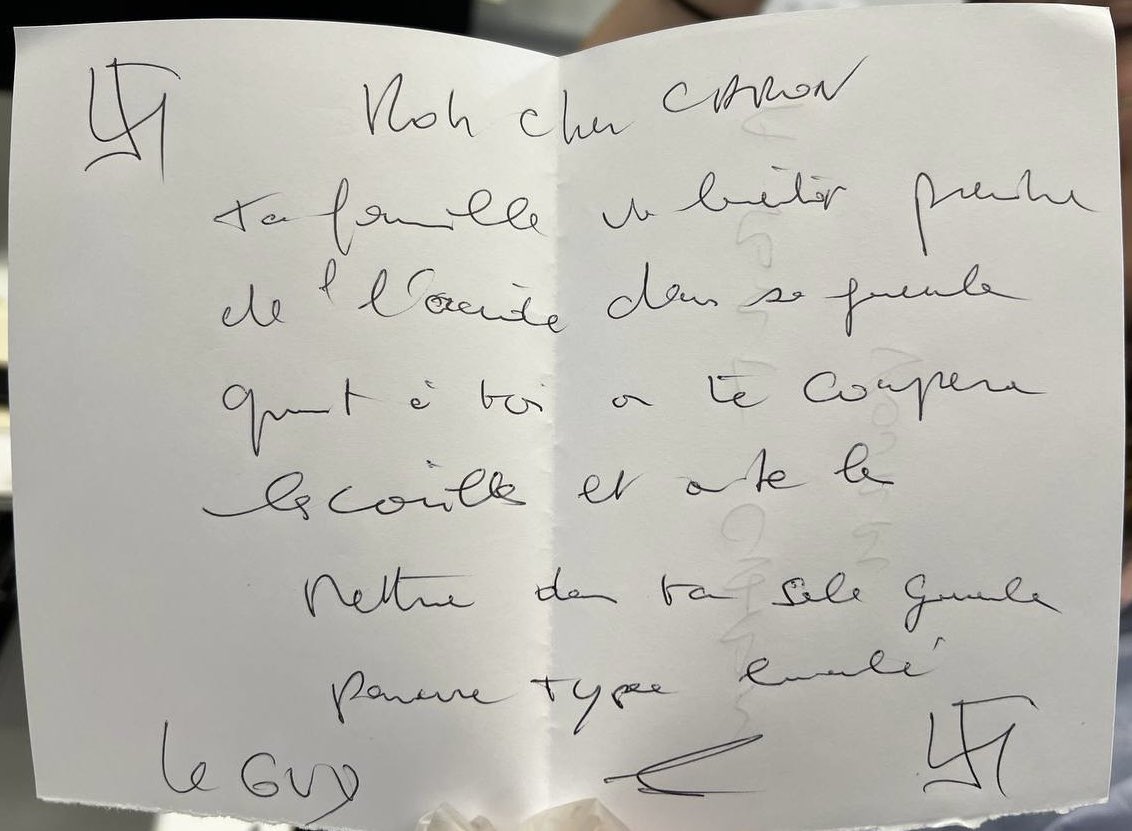 Moh cher CARON
ta famille va bientôt prendre
de l'acide dans sa gueule
quant à toi on te coupera
les couilles et on te les
mettra dans ta sale gueule
pauvre type enculé
Le GUD